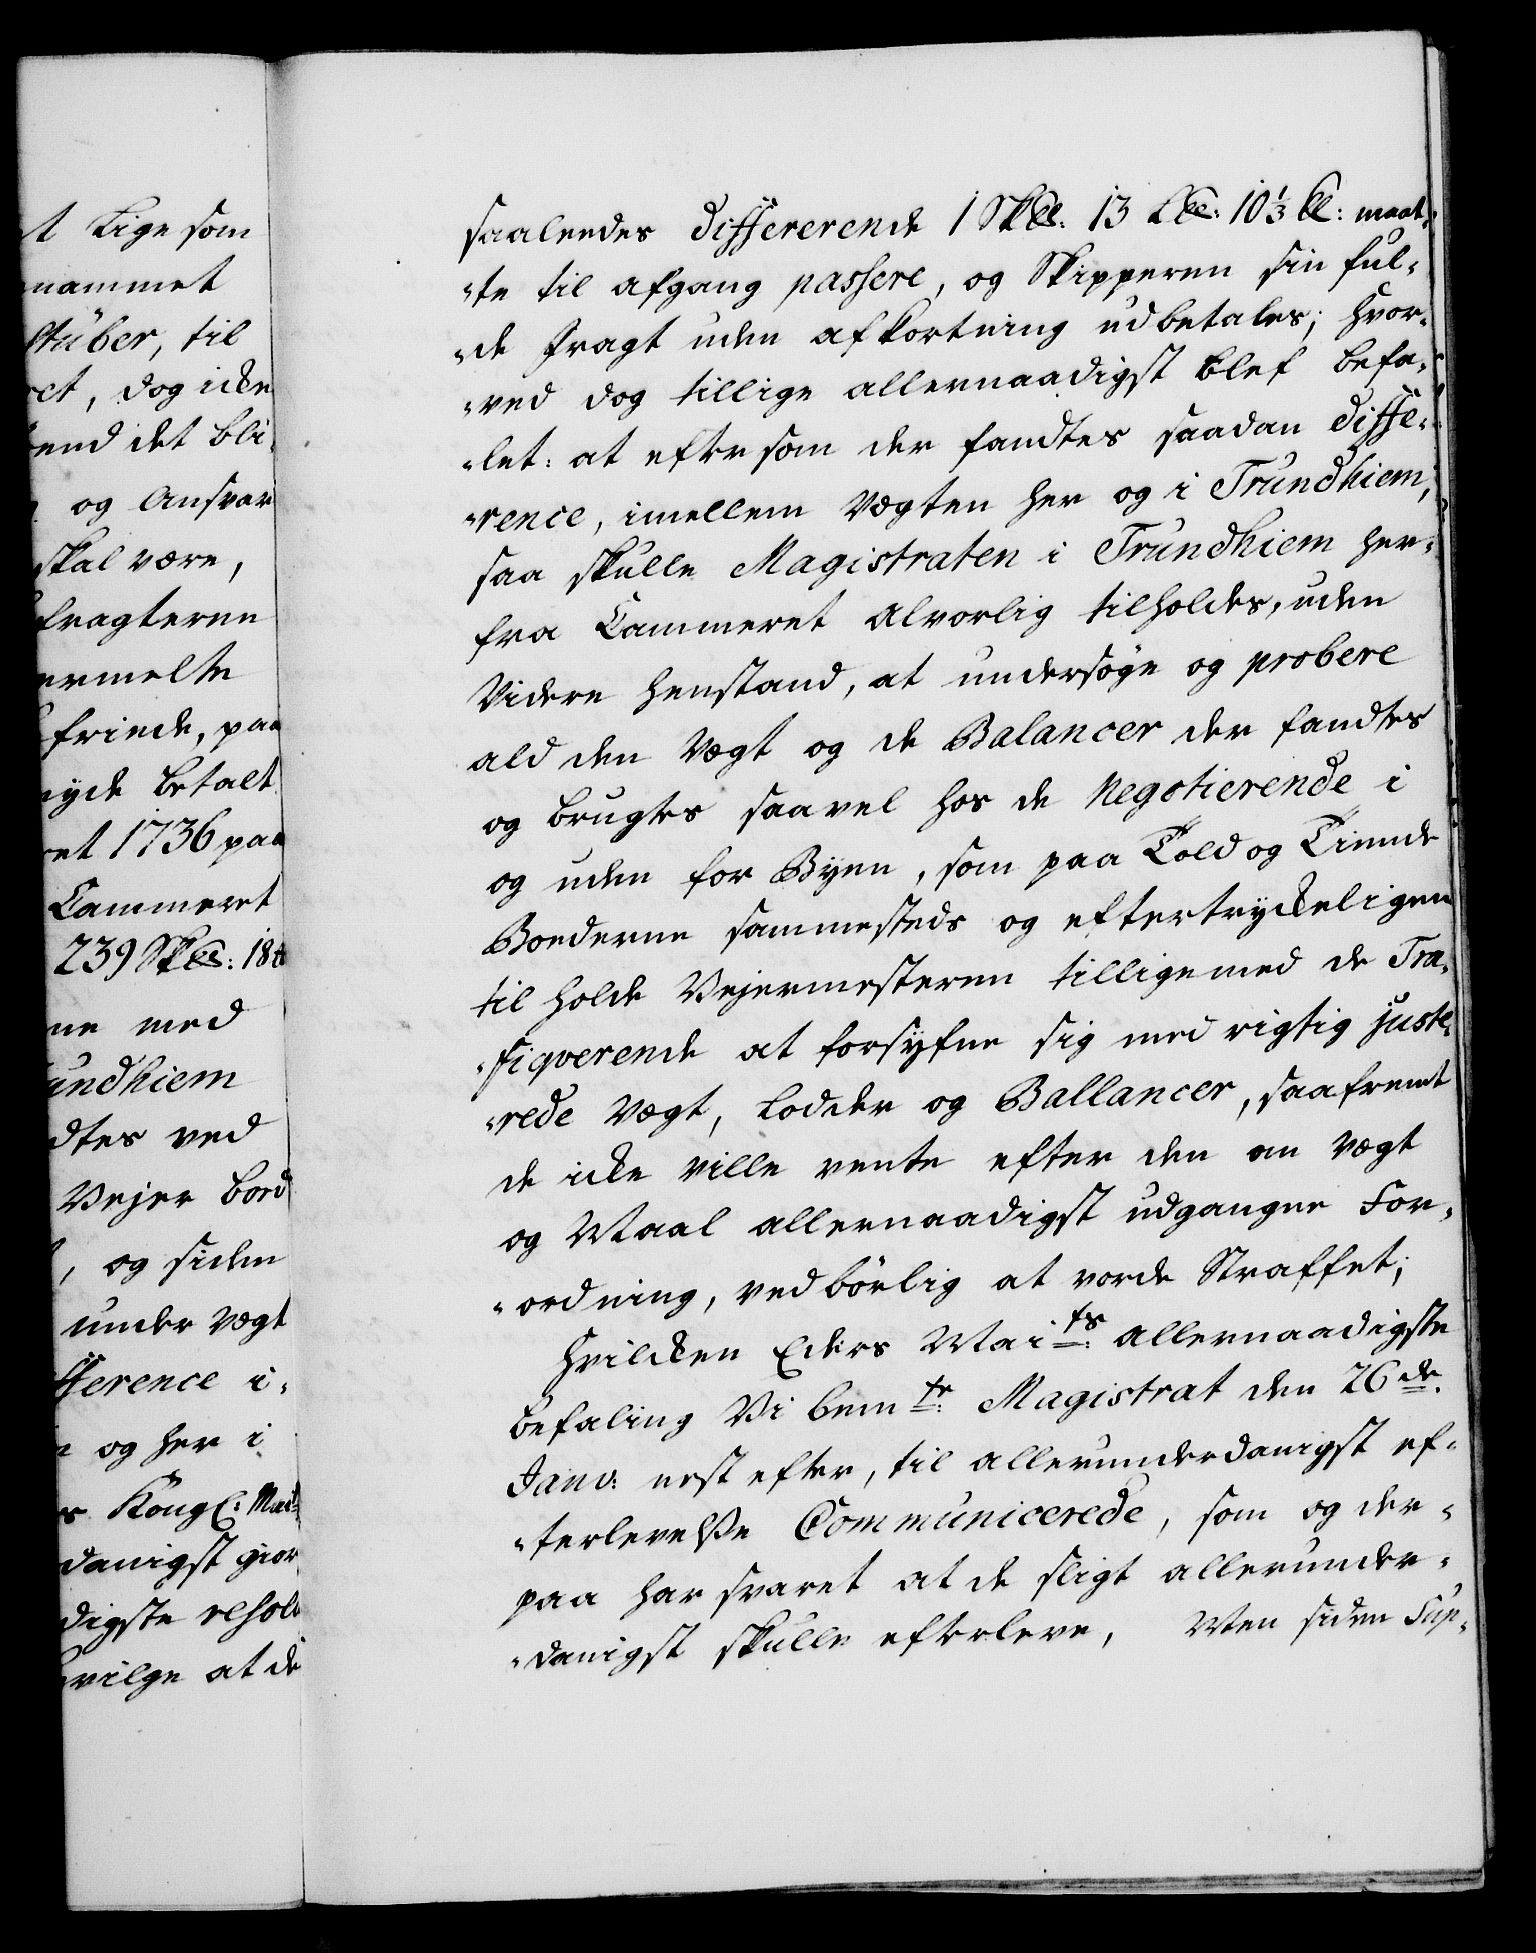 t Lige som
nammet
stüber, til
et, dog icke
end det bli-
og Ansvar
skal være,
fragterne
ermelte
friede, paa
nyde betalt
et 1736 paa
Cammeret
239 Sk℔: 18
ne med
undhiem
dtes ved
Vejer bord
, og siden
under vægt
fference i-
og her i
s Kongl: Mai
danigst gior
digste resol
vilge at de
saaleedes differerende 1 Sk℔: 13 L℔: 10⅓ ℔: maat-
-te til afgang passere, og Skipperen sin ful-
-de fragt uden afkortning udbetales; hvor-
-ved dog tillige allernaadigst blef befa-
-let: at eftersom der fandtes saadan diffe-
-rence, imellem Vægten her og i Trundhiem,
saa skulle Magistraten i Trundhiem her-
fra Cammeret alvorlig tilholdes, uden
Videre henstand, at undersøge og probere
ald den Vægt og de Balancer der fandtes
og brugtes saavel hos de Negotierende i
og uden for Byen, som paa Told og Tiende
Boederne sammesteds og eftertryckeligen
til holde Vejermesteren tilligemed de Tra-
-fiqverende at forsyfne sig med rigtig juste-
-rede Vægt, Lodder og Ballancer, saafremt
de icke ville vente efter den an vægt
og Maal allernaadigst udgangne For-
-ordning, ved børlig at vorde Straffet;
Hvilcken Eders Maits: allernaadigste
befaling Vi bemte: Magistrat den 26de
Janv: nest efter, til allerunderdanigst ef-
-terlevelße Communicerede, som og der-
paa har svaret at de sligt allerunder-
-danigst skulle efterleve, Men siden Sup-